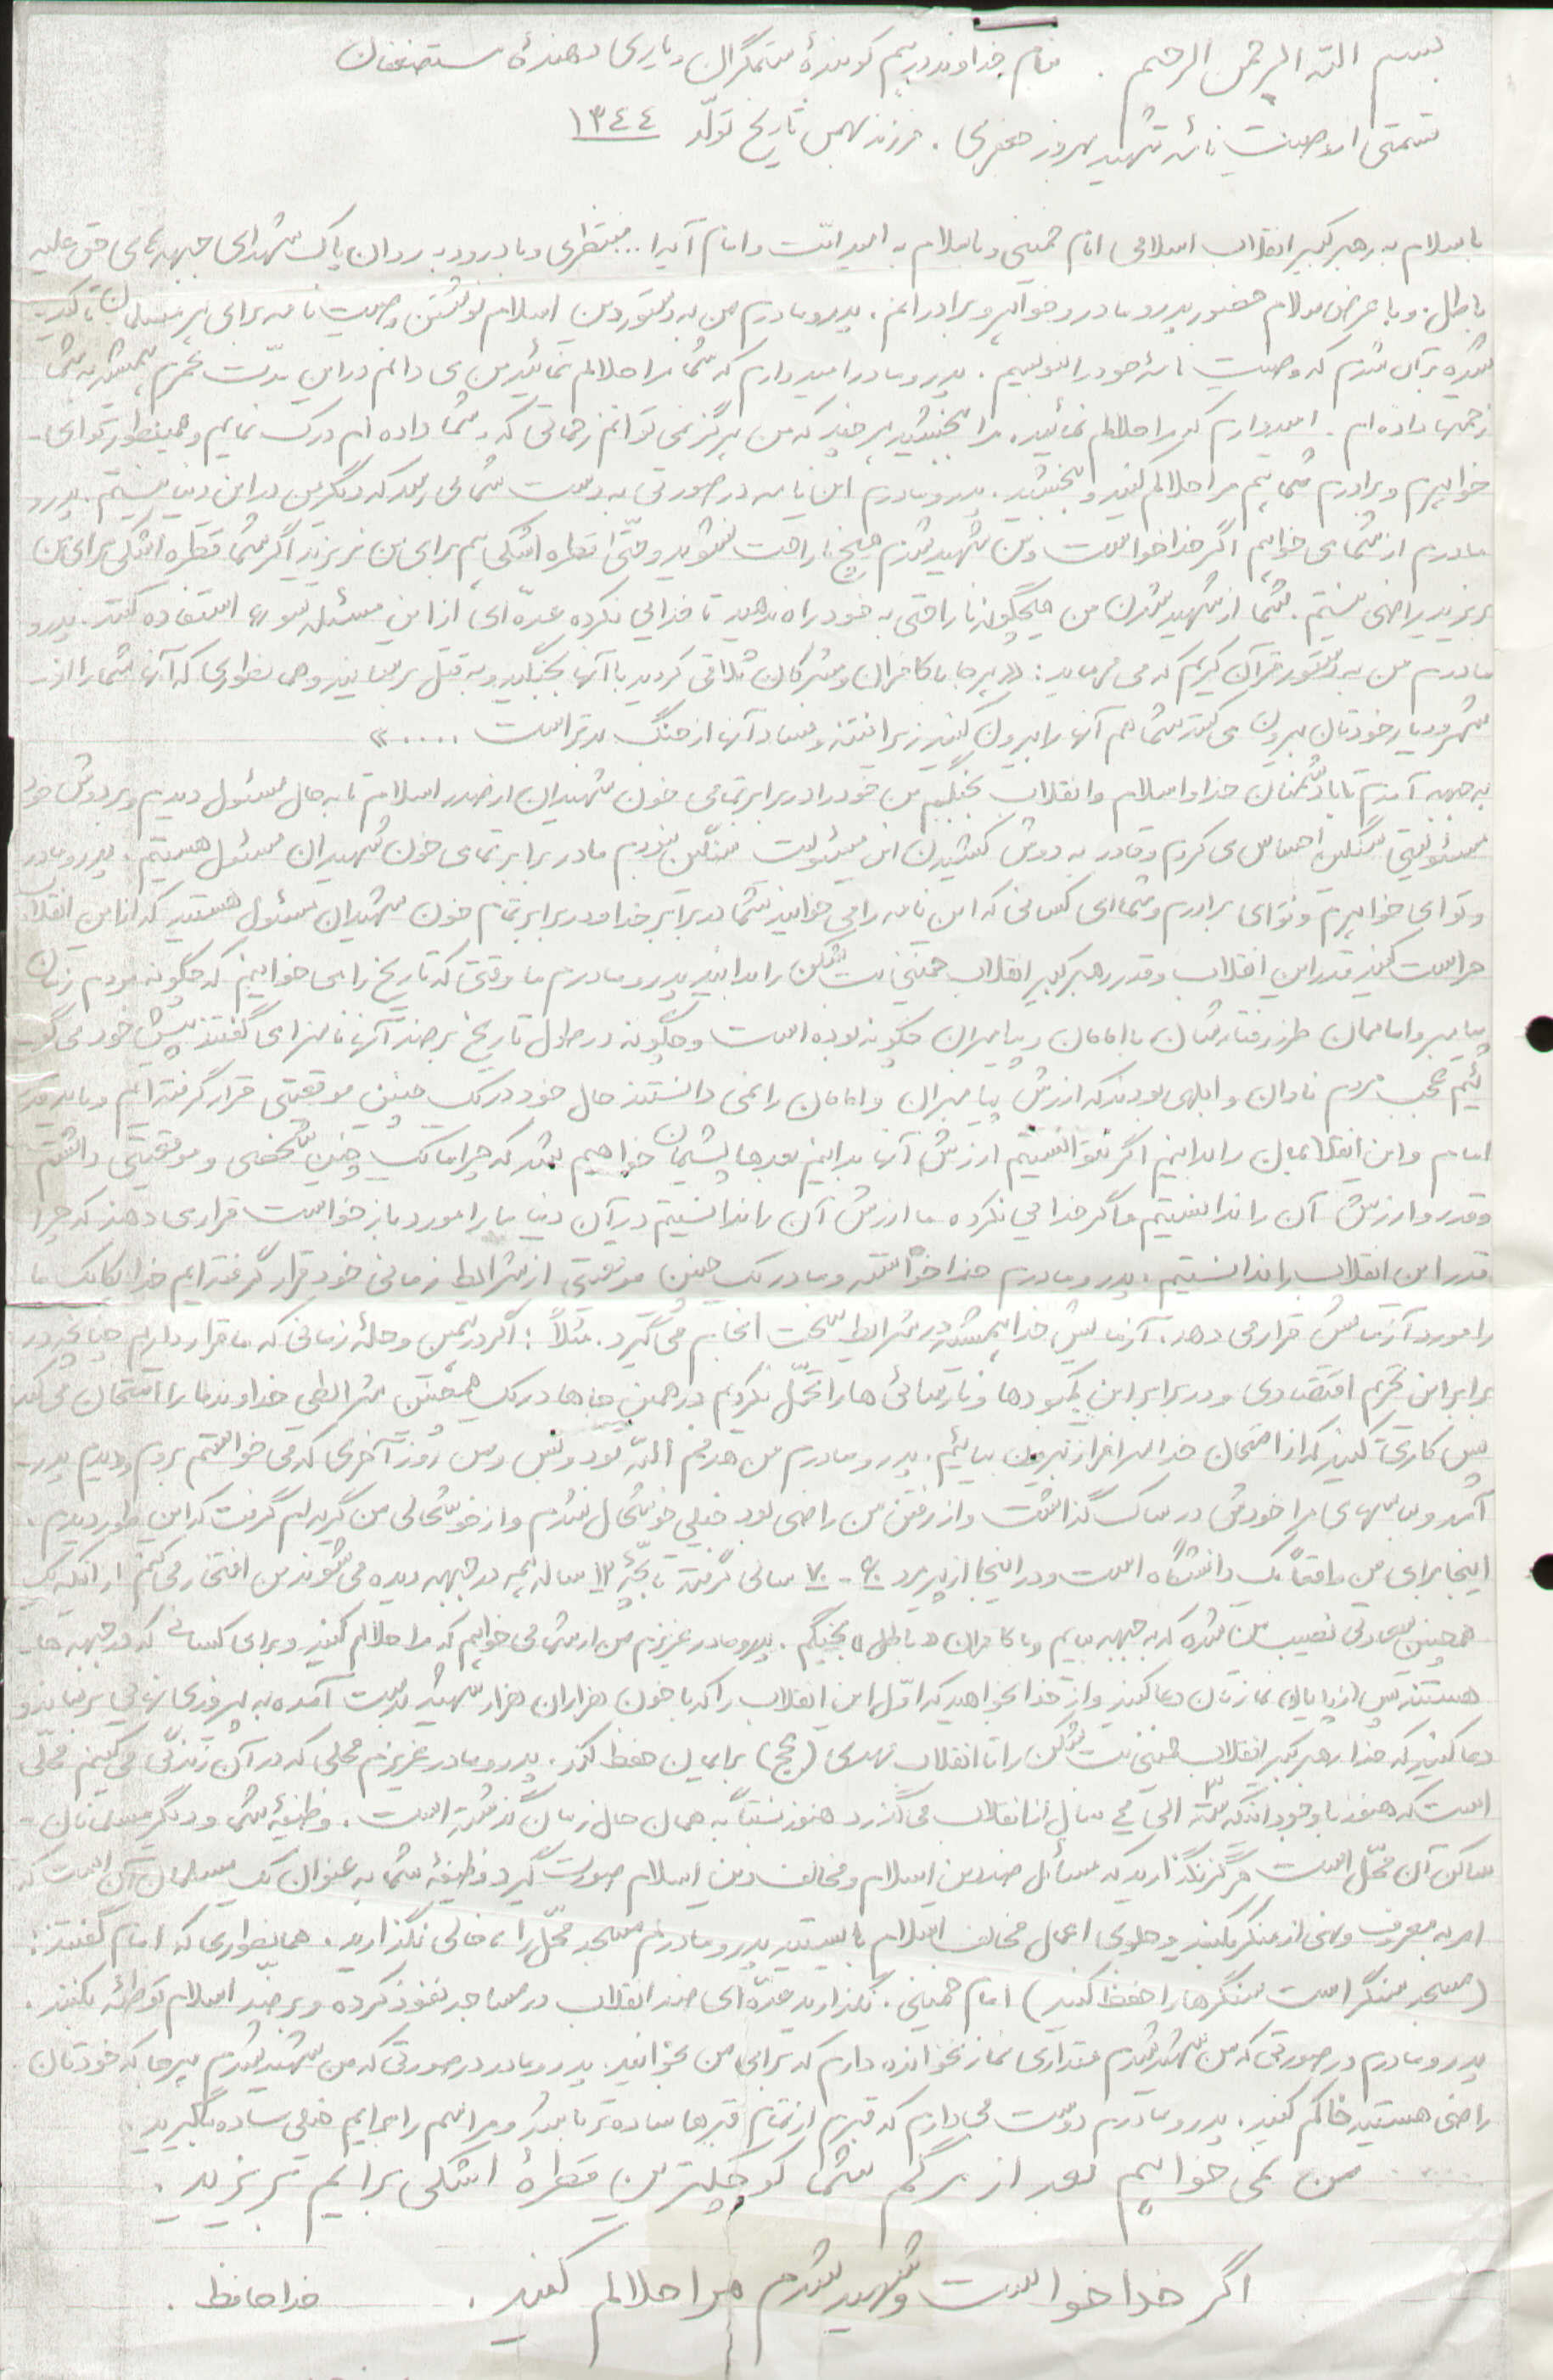 بسم الله الرحمن الرحیم . بنام خداوند درهم کوبندهٔ ستمگران و یاری دهندهٔ مستضعفان
قسمتی از وصیت نامه شهید بهروز جعفری . فرزند بهمن تاریخ تولّد ۱۳۴۴
با سلام به رهبر کبیر انقلاب اسلامی امام خمینی و با سلام به امید امّت و امام آیة ا... منتظری و با درود به روان پاک شهدای جبهه های حق علیه
باطل. و با عرض سلام حضور پدر و مادر و خواهر و برادرانم . پدر و مادرم من به دستور دین اسلام نوشتن وصیت نامه برای هر مسلمان تاکید
شده بر آن شدم که وصیت نامهٔ خود را بنویسم . پدر و مادر امیدوارم که شما مرا حلالم نمائید من می دانم در این مدّت عمرم همیشه به شما
زحمتها داده ام . امیدوارم که مرا حلالم نمائید . مرا ببخشید هر چند که من هرگز نمی توانم زحماتی که به شما داده ام درک نمایم و همینطور تو ای -
خواهرم و برادرم شما هم مرا حلالم کنید و ببخشید . پدر و مادرم این نامه در صورتی به دست شما می رسد که دیگر من در این دنیا نیستم . پدر و
مادرم از شما می خواهم اگر خدا خواست و من شهید شدم هیچ ناراحت نشوید و حتّی قطره اشکی هم برای من نریزید اگر شما قطره اشکی برای من
بریزید راضی نیستم . شما از شهید شدن من هیچگونه ناراحتی به خود راه ندهید تا خدایی نکرده عدّه ای از این مسئله سوء استفاده کنند . پدر و
مادرم من به دستور قرآن کریم که می فرماید : « هر جا با کافران و مشرکان تلاقی کردید با آنها بجنگید و به قتل برسانید و همانطوری که آنها شما را از -
شهر و دیار خودتان بیرون می کنند شما هم آنها را بیرون کنید زیرا فتنه و فساد آنها از جنگ بدتر است ..... »
به جبهه آمدم تا با دشمنان خدا و اسلام و انقلاب بجنگم من خود را در برابر تمامی خون شهیدان از صدر اسلام تا به حال مسئول دیدم و بر دوش خود
مسئولیتی سنگین احساس می کردم و قادر به دوش کشیدن این مسئولیت سنگین نبودم ما در برابر تمامی خون شهیدان مسئول هستیم . پدر و مادر
و تو ای خواهرم و تو ای برادرم و شما ای کسانی که این نامه را می خوانید شما در برابر خدا و در برابر تمام خون شهیدان مسئول هستید که از این انقلاب
حراست کنید قدر این انقلاب و قدر رهبر کبیر انقلاب خمینی بت شکن را بدانید پدر و مادرم ما وقتی که تاریخ را می خوانیم که چگونه مردم زمان
پیامبر و امامان طرز رفتارشان با امامان و پیامبران چگونه بوده است و چگونه در طول تاریخ بر ضد آنها ناسزا می گفتند پیش خود می گو -
ئیم عجب مردم نادان و ابلهی بودند که ارزش پیامبران و امامان را نمی دانستند حال خود در یک چنین موقعیتی قرار گرفته ایم و باید قدر
امام و این انقلابمان را بدانیم اگر نتوانستیم ارزش آنها بدانیم بعدها پشیمان خواهیم شد که چرا ما یک چنین شخصی و موقعیتی داشتیم
و قدر و ارزش آن را ندانستیم و اگر خدایی نکرده ما ارزش آن را ندانستیم در آن دنیا ما را مورد بازخواست قرار می دهند که چرا
قدر این انقلاب را ندانستیم . پدر و مادرم خدا خواسته و ما در یک چنین موقعیتی از شرایط زمانی خود قرار گرفته ایم خدا یکایک ما
را مورد آزمایش قرار می دهد . آزمایش خدا همیشه در شرایط سخت انجام می گیرد . مثلاً : اگر در همین وحلهٔ زمانی که ما قرار داریم چنانچه در
برابر این تحریم اقتصادی و در برابر این کمبودها و نارسائی ها را تحمّل نکردیم در همین جاها در یک همچنین شرایطی خداوند ما را امتحان می کند
پس کاری کنید که از امتحان خدا سرافراز بیرون بیائیم . پدر و مادرم من هدفم الله بود و بس و من روز آخری که می خواستم بروم و دیدم پدر -
آمد و لباسهای مرا خودش در ساک گذاشت و از رفتن من راضی بود خیلی خوشحال شدم و از خوشحالی من گریه ام گرفت که این طور دیدم .
اینجا برای من واقعاً یک دانشگاه است و در اینجا از پیرمرد ۶۰ - ۷۰ سالی گرفته تا بچّهٔ ۱۳ ساله هم در جبهه دیده می شوند من افتخار می کنم از اینکه یک
همچنین سعادتی نصیب من شده که به جبهه بیایم و با کافران « باطل » بجنگم . پدر و مادر عزیزم من از شما می خواهم که مرا حلالم کنید و برای کسانی که در جبهه ها -
هستند پس از پایان نمازتان دعا کنید و از خدا بخواهید که اوّل این انقلاب را که با خون هزاران هزار شهید بدست آمده به پیروزی نهایی برساند و
دعا کنید که خدا رهبر کبیر انقلاب خمینی بت شکن را تا انقلاب مهدی (عج) برایمان حفظ کند . پدر و مادر عزیزم محلی که در آن زندگی می کنیم محلّی
است که هنوز با وجود اینکه سه الی ۴ سال از انقلاب می گذرد هنوز نسبتاً به همان حال زمان گذشته است . وظیفهٔ شما و دیگر مسلمانان -
ساکن آن محّل است هرگز نگذارید که مسائل ضد دین اسلام و مخالف دین اسلام صورت گیرد وظیفهٔ شما به عنوان یک مسلمان آن است که
امر به معروف و نهی از منکر بکنید و جلوی اعمال مخالف اسلام بایستید پدر و مادرم مسجد محّل را ، خالی نگذارید . همانطوری که امام گفتند :
( مسجد سنگر است سنگرها را حفظ کنید ) امام خمینی . نگذارید عدّه ای ضد انقلاب در مساجد نفوذ کرده و بر ضد اسلام توطئه بکنند .
پدر و مادرم در صورتی که من شهید شدم مقداری نماز نخوانده دارم که برای من بخوانید . پدر و مادر در صورتی که من شهید شدم هر جا که خودتان
راضی هستید خاکم کنید . پدر و مادرم دوست می دارم که قبرم از تمام قبرها ساده تر باشد و مراسم را برایم خیلی ساده بگیرید .
من نمی خواهم بعد از مرگم شما کوچکترین قطرهٔ اشکی برایم بریزید .
اگر خدا خواست و شهید شدم مرا حلالم کنید . خداحافظ .